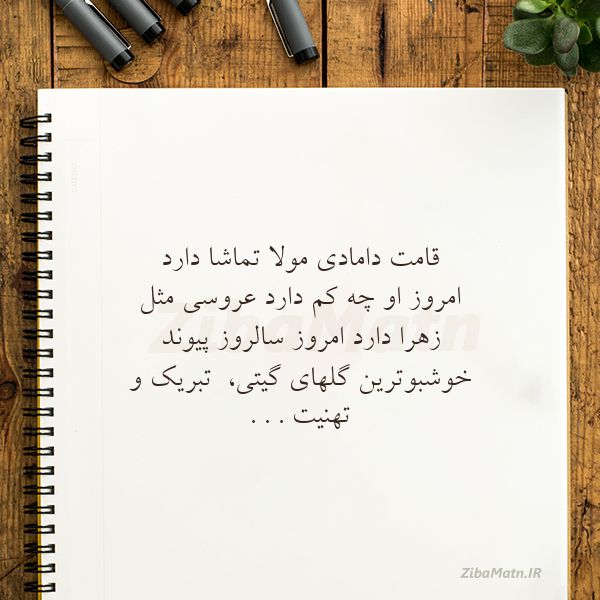 قامت دامادی مولا تماشا دارد
امروز او چه کم دارد عروسی مثل
زهرا دارد امروز سالروز پیوند
خوشبوترین گلهای گیتی، تبریک و
تهنیت . . .
ZibaMatn
ZibaMatn.IR